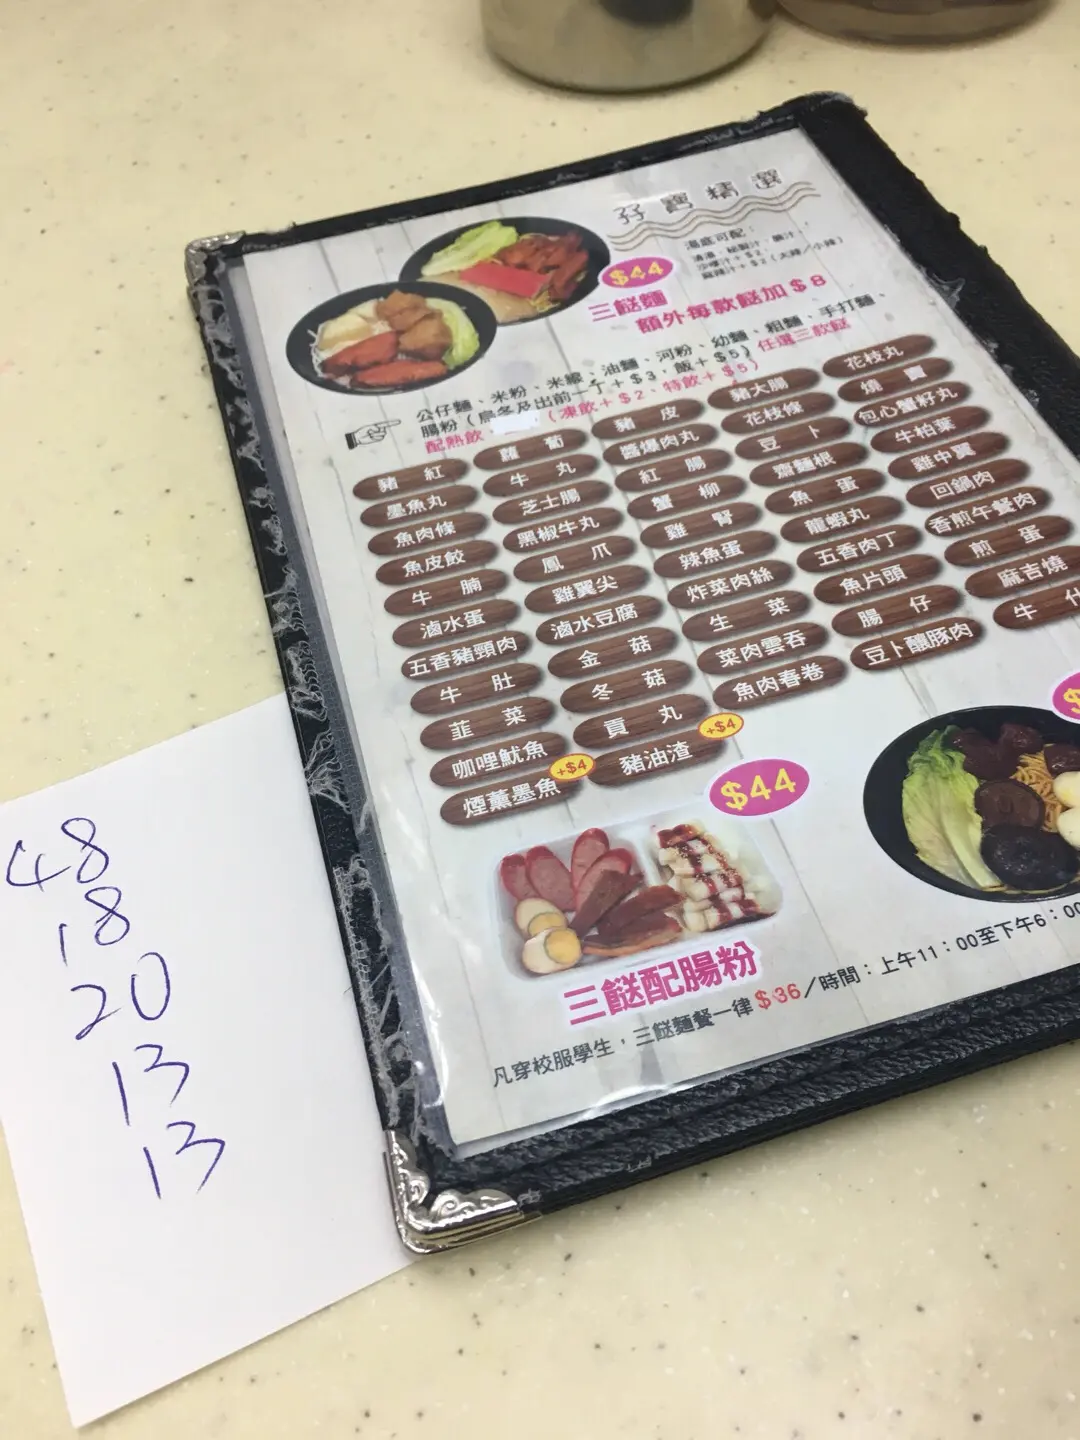 孖寶精選
湯底可配：
清湯、秘製汁、腩汁、
沙嗲汁+$2、
麻辣汁+$2（大辣/小辣）
$44
三餸麵
額外每款餸加$8
公仔麵、米粉、米線、油麵、河粉、幼麵、粗麵、手打麵、
腸粉（烏冬及出前一丁+$3，飯+$5）任選三款餸
配熱飲（凍飲+$2、特飲+$5）
豬紅 蘿蔔 豬皮 豬大腸 花枝丸
墨魚丸 牛丸 醬爆肉丸 花枝條 燒賣
魚肉條 芝士腸 紅腸 豆卜 包心蟹籽丸
魚皮餃 黑椒牛丸 蟹柳 齋麵根 牛柏葉
牛腩 鳳爪 雞腎 魚蛋 雞中翼
滷水蛋 雞翼尖 辣魚蛋 龍蝦丸 回鍋肉
五香豬頸肉 滷水豆腐 炸菜肉絲 五香肉丁 香煎午餐肉
牛肚 金菇 生菜 魚片頭 煎蛋
韮菜 冬菇 菜肉雲吞 腸仔 麻吉燒
咖哩魷魚 貢丸 魚肉春卷 豆卜釀豚肉 牛什
煙薰墨魚 +$4 豬油渣 +$4
$44
三餸配腸粉
凡穿校服學生，三餸麵餐一律$36/時間：上午11：00至下午6：00
48
18
20
13
13